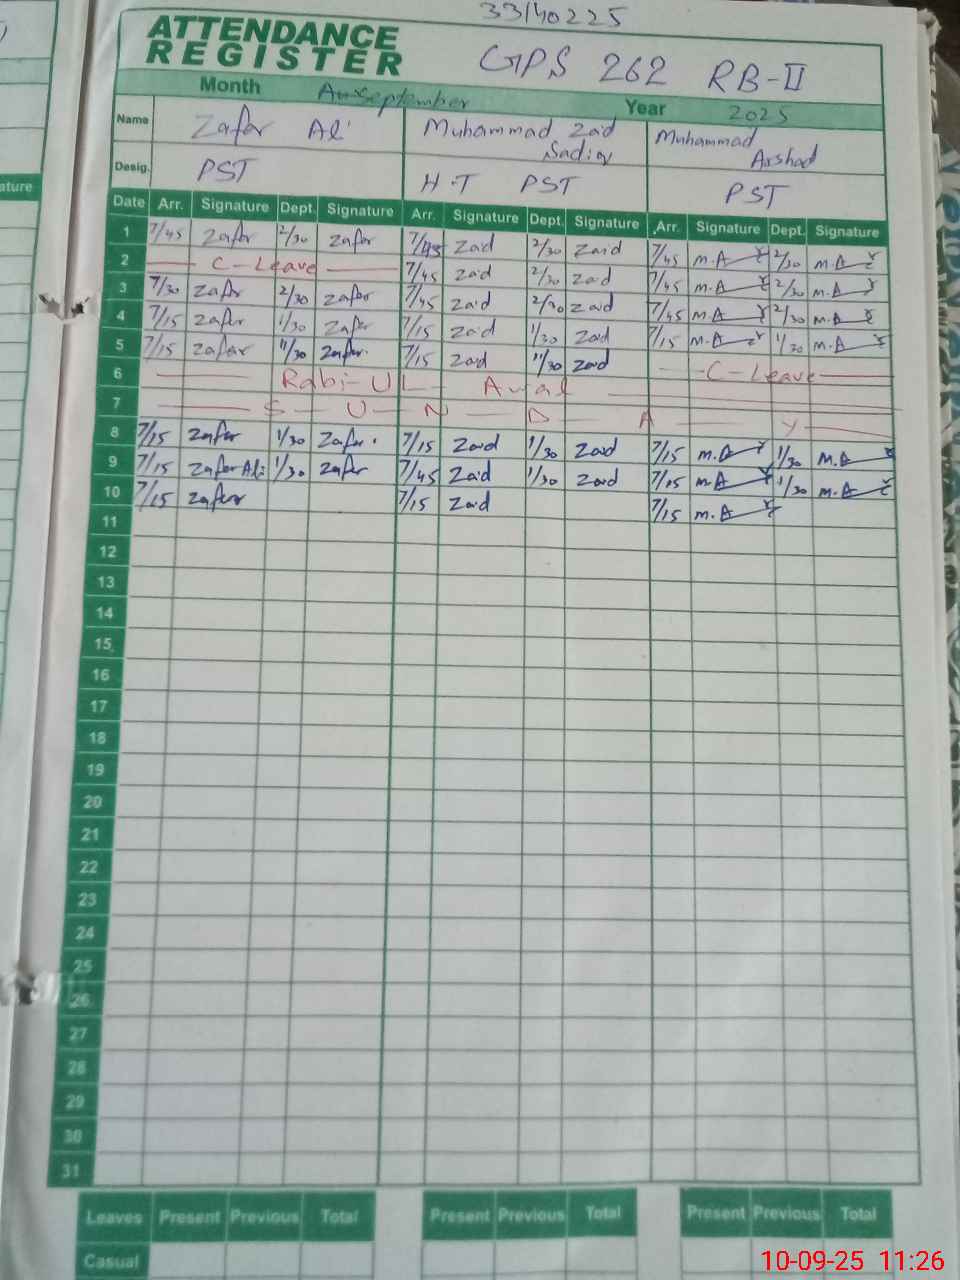 33140225
ATTENDANCE
REGISTER
GPS 262 RB-II
Month September Year 2025
Name Zafar Ali Muhammad Zaid Sadiq Muhammad Arshad
Desig. PST H.T PST PST
Date Arr. Signature Dept. Signature Arr. Signature Dept. Signature Arr. Signature Dept. Signature
1 7/45 Zafar 2/30 Zafar 7/45 Zaid 2/30 Zaid 7/45 M.A 2/30 M.A
2 C-Leave 7/45 Zaid 2/30 Zaid 7/45 M.A 2/30 M.A
3 7/30 Zafar 2/30 Zafar 7/45 Zaid 2/30 Zaid 7/45 M.A 2/30 M.A
4 7/15 Zafar 1/30 Zafar 7/15 Zaid 1/30 Zaid 7/15 M.A 1/30 M.A
5 7/15 Zafar 11/30 Zafar. 7/15 Zaid 11/30 Zaid C-Leave
6 Rabi-UL- Awal
7 S-U-N-D-A-Y
8 7/15 Zafar 1/30 Zafar. 7/15 Zaid 1/30 Zaid 7/15 M.A 1/30 M.A
9 7/15 Zafar Ali 1/30 Zafar 7/45 Zaid 1/30 Zaid 7/15 M.A 1/30 M.A
10 7/15 Zafar 7/15 Zaid 7/15 M.A
11
12
13
14
15
16
17
18
19
20
21
22
23
24
25
26
27
28
29
30
31
Leaves Present Previous Total Present Previous Total Present Previous Total
Casual
10-09-25 11:26